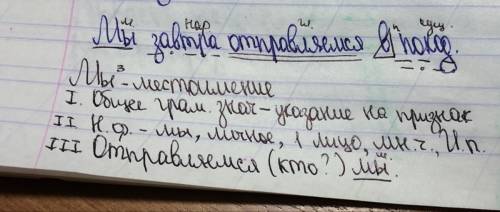 м. нар. г. п сущ.
Мы завтра отправляемся в поход.
Мы³ - местоимение
I. Общее грам. знач - указание на признак
II Н.ф. - мы, личное, 1 лицо, мн.ч., И.п.
III Отправляемся (кто?) мы.